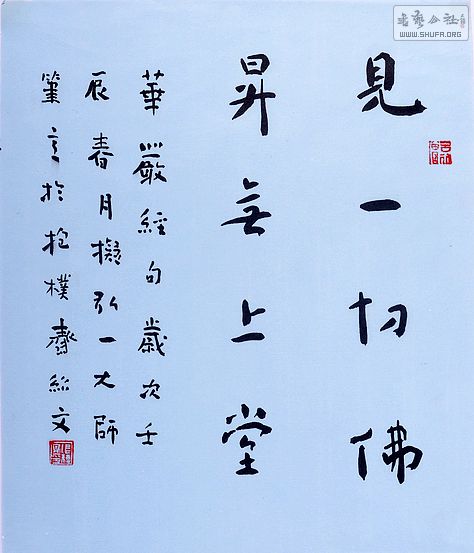 書藝公社
WWW.SHUFA.ORG
見一切佛
昇無上堂
華嚴經句歲次壬
辰春月擬弘一大師
筆意於抱樸齋紹文